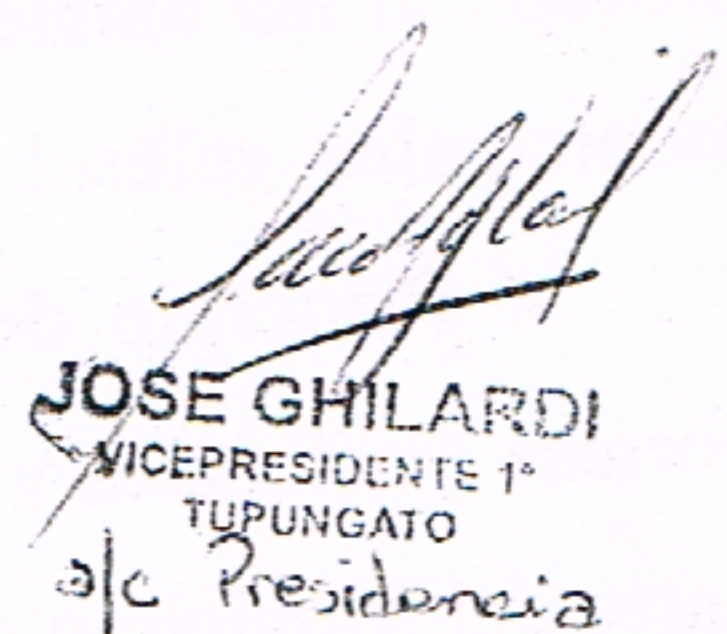 JOSE GHILARDI
VICEPRESIDENTE 1°
TUPUNGATO
a/c Presidencia